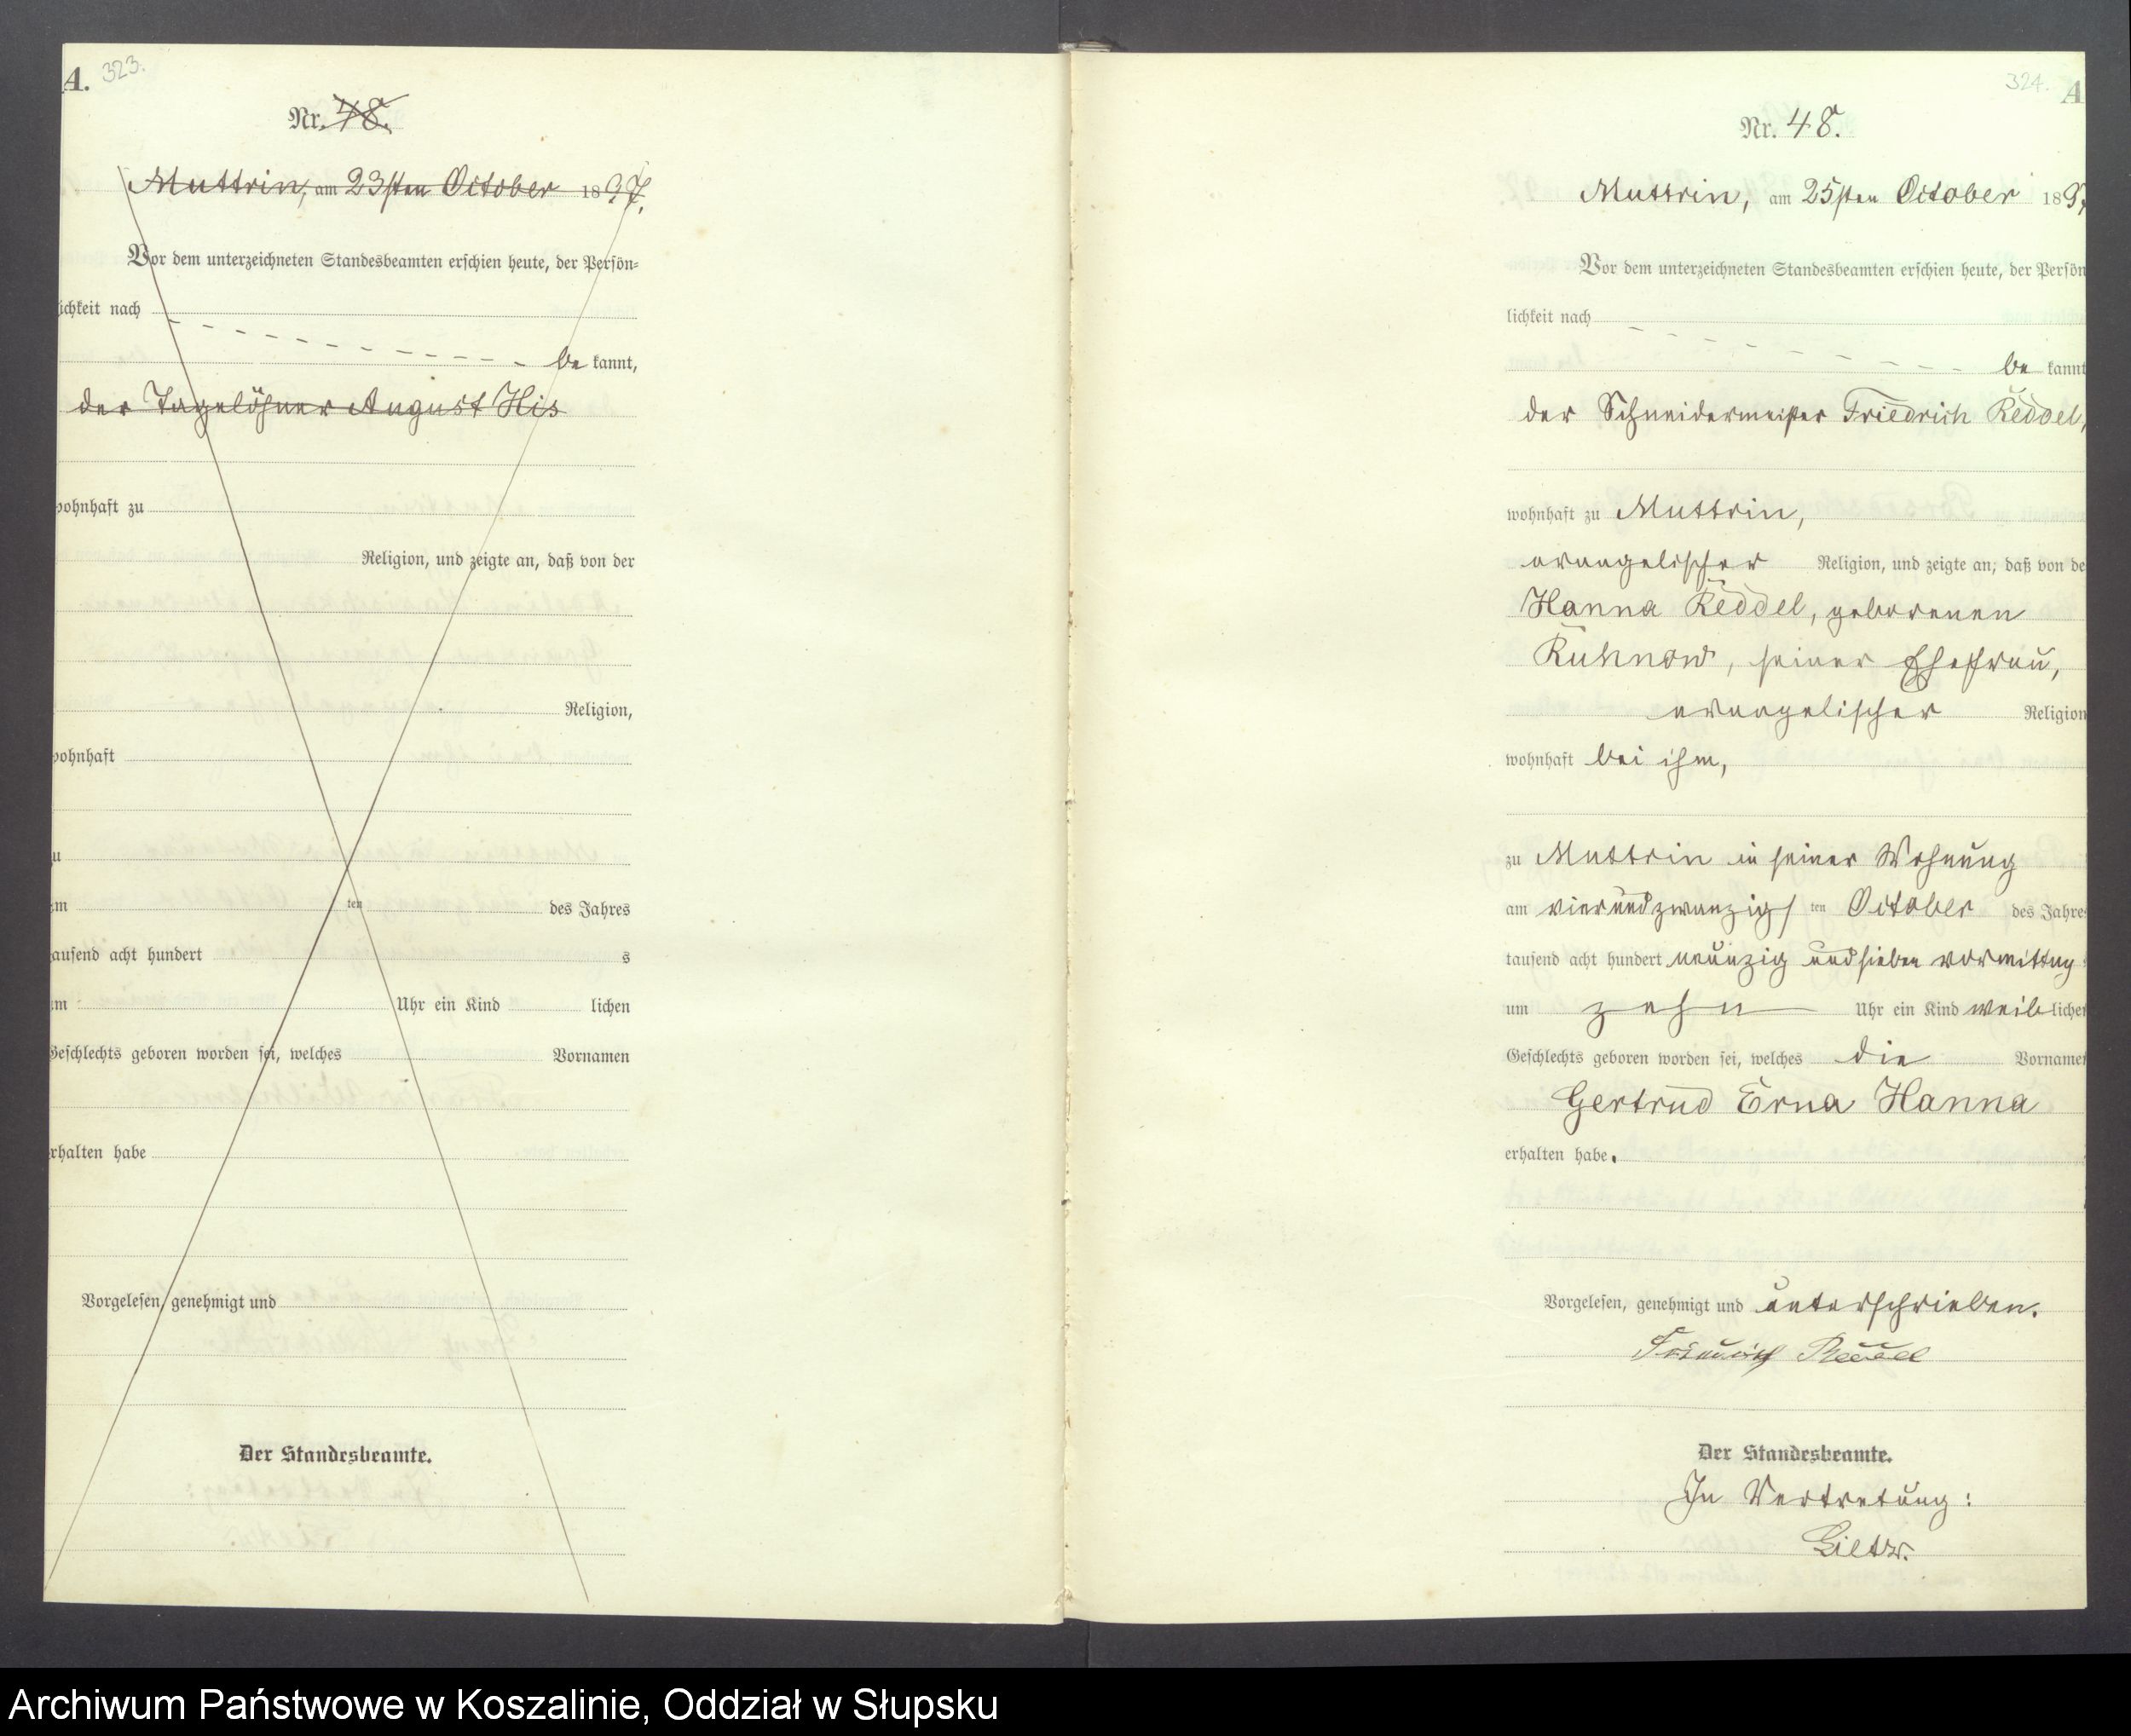 A. 323.
Nr. 48.
Muttrin, am 23sten October 1897.
Vor dem unterzeichneten Standesbeamten erschien heute, der Persön=
lichkeit nach
be kannt,
der Tagelöhner August His
wohnhaft zu
Religion, und zeigte an, daß von der
Religion,
wohnhaft
zu
am ten des Jahres
tausend acht hundert s
um Uhr ein Kind lichen
Geschlechts geboren worden sei, welches Vornamen
erhalten habe
Vorgelesen, genehmigt und
Der Standesbeamte.
324. A
Nr. 48.
Muttrin, am 25sten October 1897
Vor dem unterzeichneten Standesbeamten erschien heute, der Persön
lichkeit nach
be kannt
der Schneidermeister Friedrich Reddel,
wohnhaft zu Muttrin,
evangelischer Religion, und zeigte an, daß von de
Hanna Reddel, geborenen
Kuhnow, seiner Ehefrau,
evangelischer Religion
wohnhaft bei ihm,
zu Muttrin in seiner Wohnung
am vierundzwanzigs ten October des Jahres
tausend acht hundert neunzig und sieben vormittag
um zehn Uhr ein Kind weiblichen
Geschlechts geboren worden sei, welches die Vornamen
Gertrud Erna Hanna
erhalten habe.
Vorgelesen, genehmigt und unterschrieben.
Friedrich Reddel
Der Standesbeamte.
In Vertretung:
Archiwum Państwowe w Koszalinie, Oddział w Słupsku